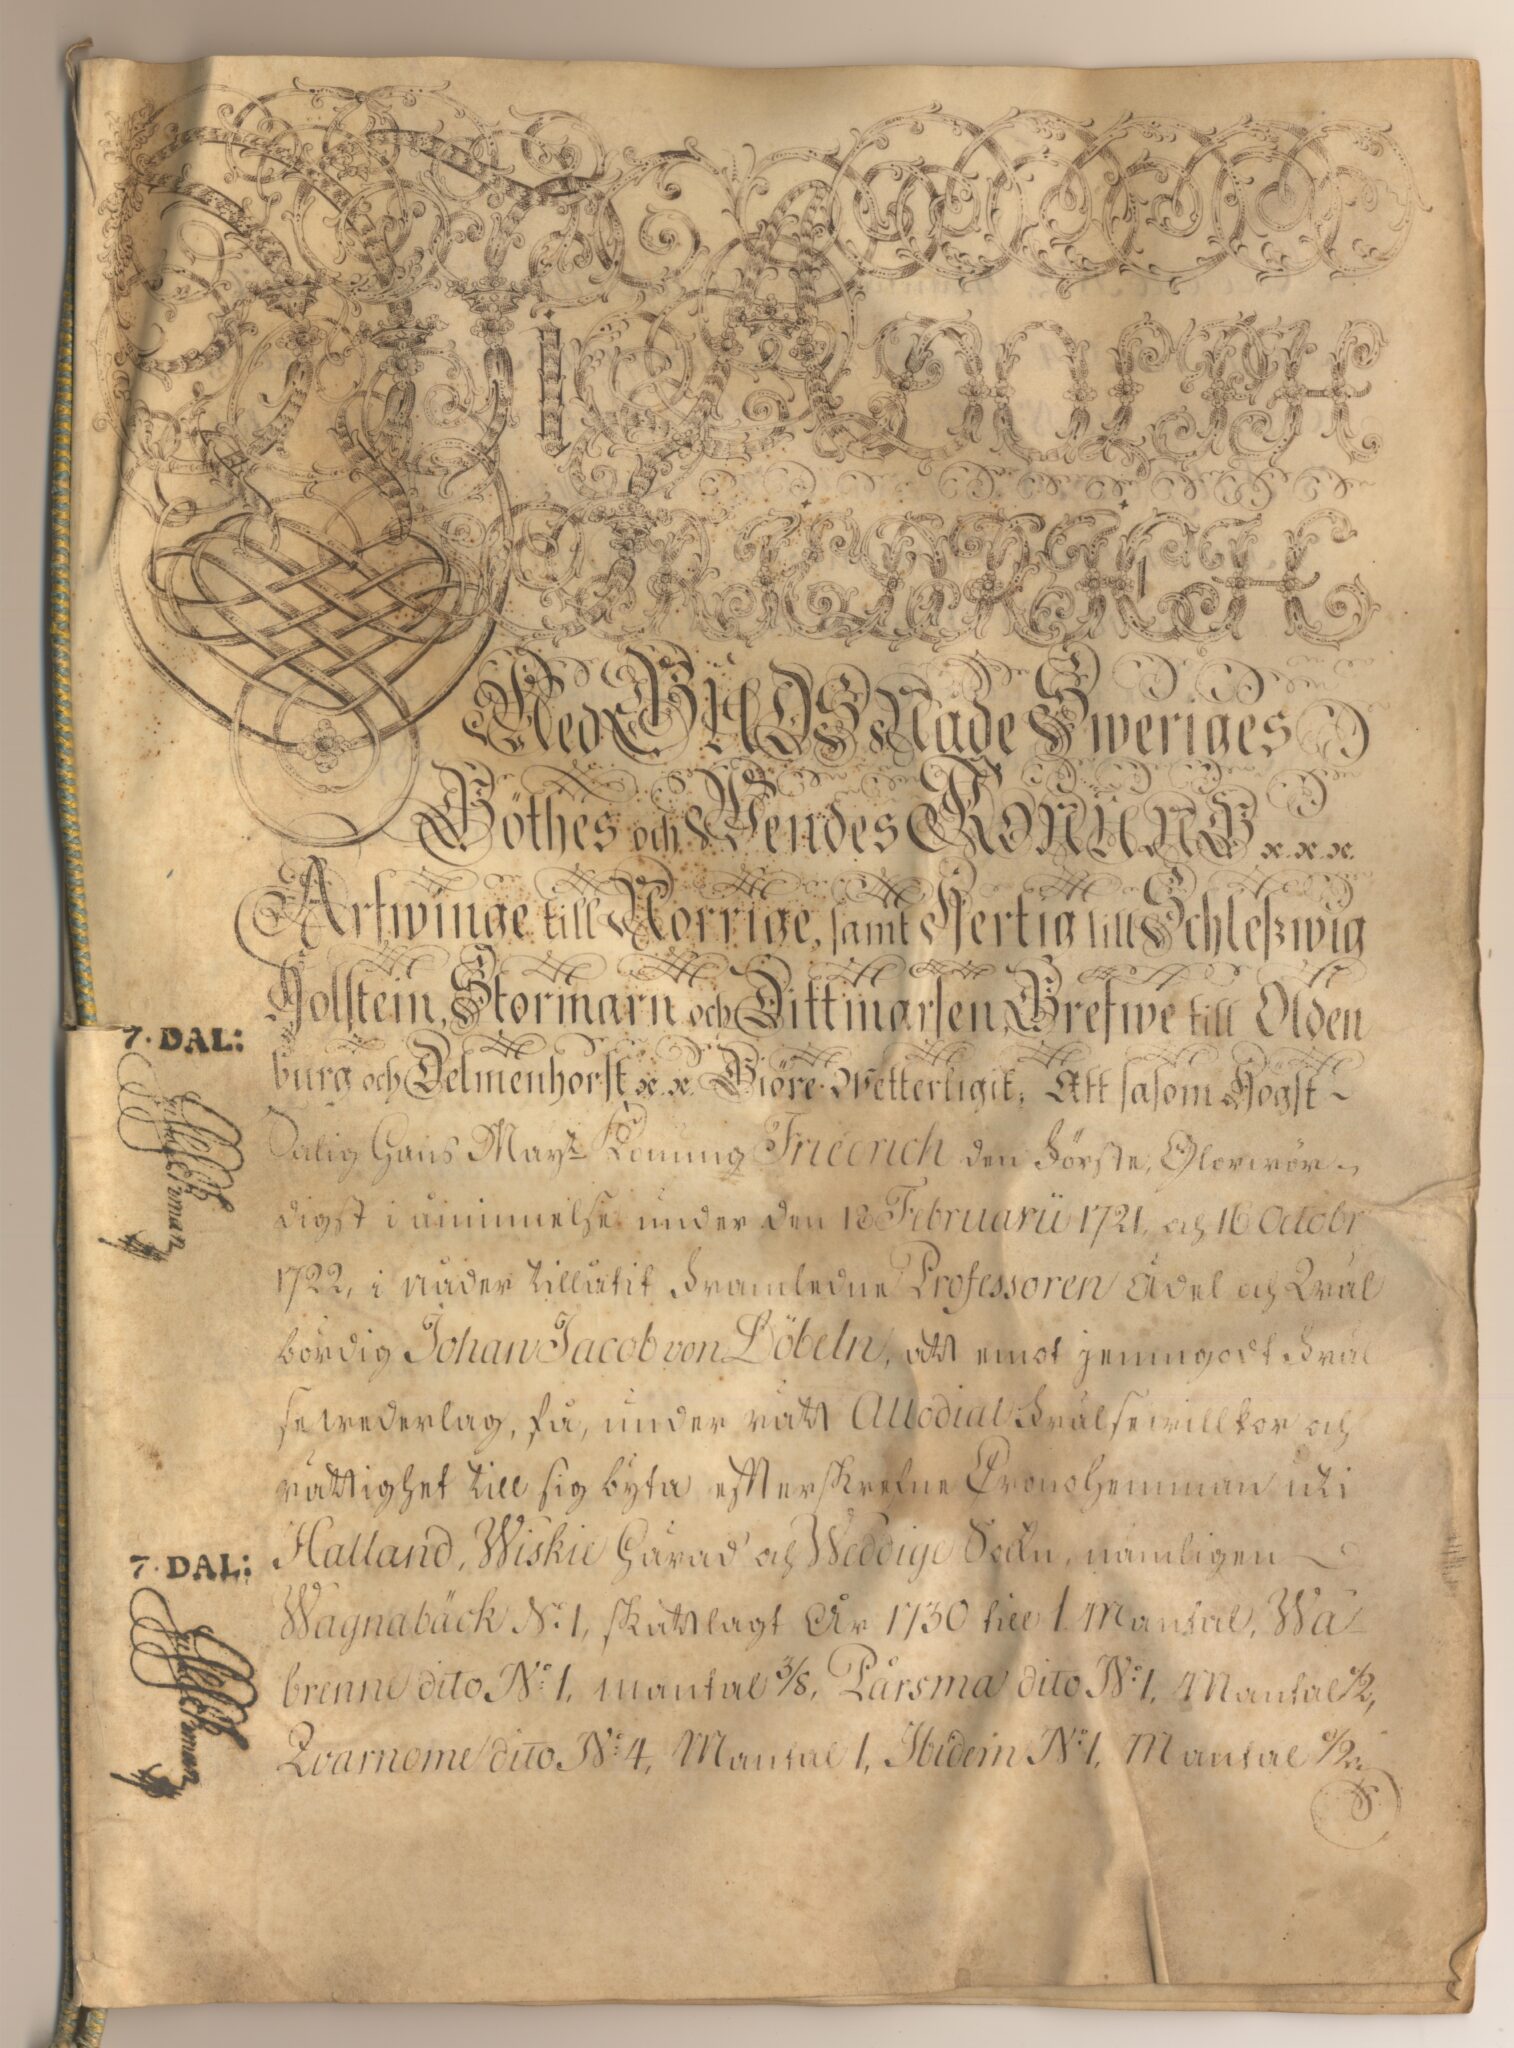 Wi ADOLPH
FRIEDRICH
Med GUDS Nåde Sweriges
Göthes och Wendes KONUNG x. x. x.
Arfwinge till Norrige, samt Hertig till Schleßwig
Holstein, Stormarn och Dittmarsen, Grefwe till Olden
burg och Delmenhorst x. x. Giöre Wetterligit, Att såsom Högst-
Salig Hans Mayt Konung Friedrich den Förste, Glorwör-
digst i åminnelse under den 18 Februarii 1721, och 16 Octobr
1722, i nåder tillåtit Framledne Professoren Ädel och Wäl
bördig Johan Jacob von Döbeln, att emot jemngodt Fräl
sewederlag, få, under rätt Allodial Frälsewillkor och
rättighet till sig byta efterskrefne Cronohemman uti
Halland, Wiskie Härad och Weddige Sokn, nämligen
Wagnabäck No: 1, skattlagt År 1730 till 1 Mantal, Wa-
brenne dito No: 1, mantal 3/8, Pärsma dito No: 1, Mantal 1/2,
Qvarnome dito No: 4, Mantal 1, Ibidem No: 1, Mantal 1/2.
7. DAL:
7. DAL: